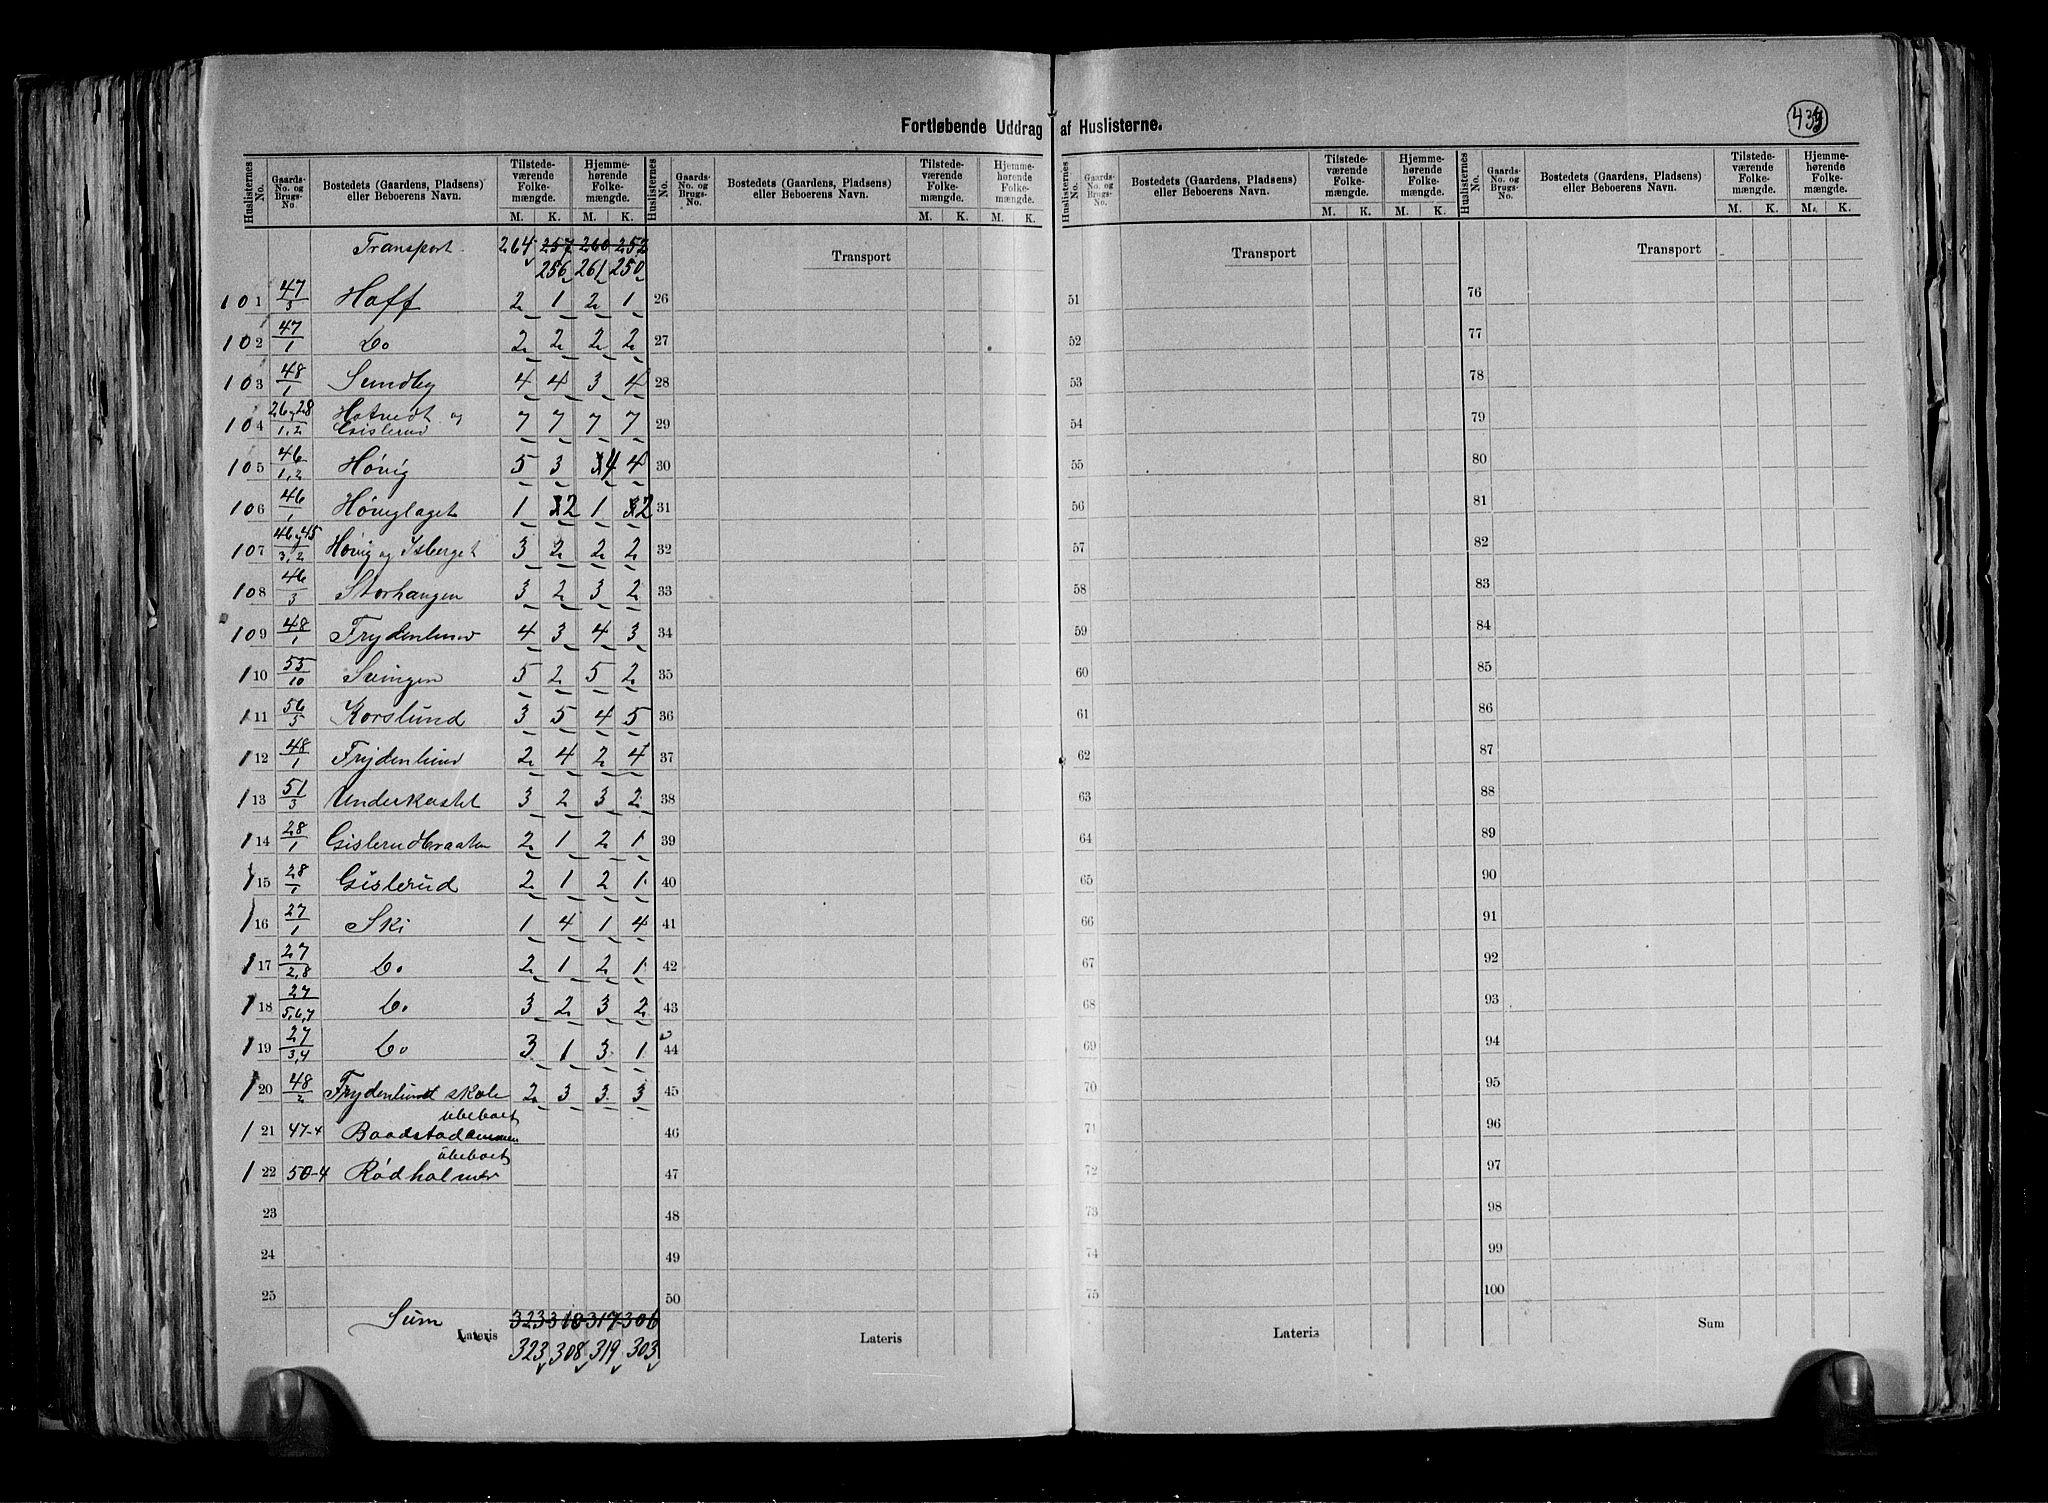 Fortløbende Uddrag af Huslisterne.
435
Huslisternes No. Gaards-No. og Brugs-No. Bostedets (Gaardens, Pladsens) eller Beboerens Navn. Tilstedeværende Folkemængde. M. K. Hjemmehørende Folkemængde. M. K.
Huslisternes No. Gaards-No. og Brugs-No. Bostedets (Gaardens, Pladsens) eller Beboerens Navn. Tilstedeværende Folkemængde. M. K. Hjemmehørende Folkemængde. M. K.
Huslisternes No. Gaards-No. og Brugs-No. Bostedets (Gaardens, Pladsens) eller Beboerens Navn. Tilstedeværende Folkemængde. M. K. Hjemmehørende Folkemængde. M. K.
Huslisternes No. Gaards-No. og Brugs-No. Bostedets (Gaardens, Pladsens) eller Beboerens Navn. Tilstedeværende Folkemængde. M. K. Hjemmehørende Folkemængde. M. K.
Transport 264 257 260 252 Transport Transport Transport
256 261 250
101 47/3 Hoff 2 1 2 1 26 51 76
102 47/1 Do 2 2 2 2 27 52 77
103 48/1 Sundby 4 4 3 4 28 53 78
104 26 og 28/1,2 Hotvedt og Gislerud 7 7 7 7 29 54 79
105 46/1,2 Hövig 5 3 4 4 30 55 80
106 46/1 Höviglaget 1 2 1 2 31 56 81
107 46 og 45/3,2 Hövig og Isberget 3 2 2 2 32 57 82
108 46/3 Storhaugen 3 2 3 2 33 58 83
109 48/1 Frydenlund 4 3 4 3 34 59 84
110 55/10 Svingen 5 2 5 2 35 60 85
111 56/5 Korslund 3 5 4 5 36 61 86
112 48/1 Frydenlund 2 4 2 4 37 62 87
113 51/3 Underkastet 3 2 3 2 38 63 88
114 28/1 Gislerudbraaten 2 1 2 1 39 64 89
115 28/1 Gislerud 2 1 2 1 40 65 90
116 27/1 Ski 1 4 1 4 41 66 91
117 27/2,8 Do 2 1 2 1 42 67 92
118 27/5,6,7 Do 3 2 3 2 43 68 93
119 27/3,4 Do 3 1 3 1 44 69 94
120 48/2 Frydenlund skole 2 3 3 3 45 70 95
ubeboet
121 47-4 Baadstadammen 46 71 96
ubeboet
122 50-4 Rödholmen 47 72 97
23 48 73 98
24 49 74 99
25 50 75 100
Sum Lateris 323 310 317 306 Lateris Lateris Sum
323 308 319 303